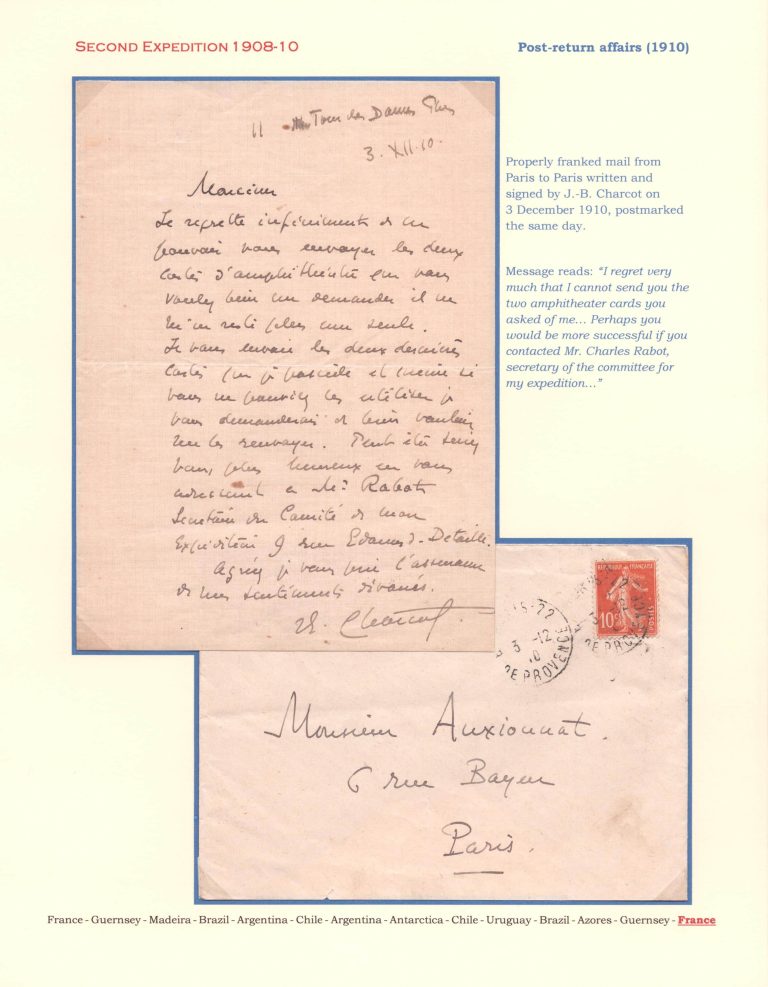 SECOND EXPEDITION 1908-10
Post-return affairs (1910)
11 Tour des Dames
3. XII. 10.
Monsieur
Je regrette infiniment de ne
pouvoir vous envoyer les deux
cartes d'amphithéâtre que vous
voulez bien me demander il ne
m'en reste plus une seule.
Je vous envoie les deux dernières
cartes que je possède et même si
vous ne pouviez les utiliser je
vous demanderais de bien vouloir
me les renvoyer. Peut être serez
vous, plus heureux en vous
adressant à Mr Rabot
Secrétaire du Comité de mon
Expédition 9 rue Edouard-Detaille.
Agréez je vous prie l'assurance
de mes sentiments dévoués.
Charcot
Properly franked mail from
Paris to Paris written and
signed by J.-B. Charcot on
3 December 1910, postmarked
the same day.
Message reads: “I regret very
much that I cannot send you the
two amphitheater cards you
asked of me... Perhaps you
would be more successful if you
contacted Mr. Charles Rabot,
secretary of the committee for
my expedition...”
REPUBLIQUE FRANÇAISE
10c
POSTES
3 -12
10
DE PROVENCE
Monsieur Auxionnat.
6 rue Bayen
Paris.
France - Guernsey - Madeira - Brazil - Argentina - Chile - Argentina - Antarctica - Chile - Uruguay - Brazil - Azores - Guernsey - France